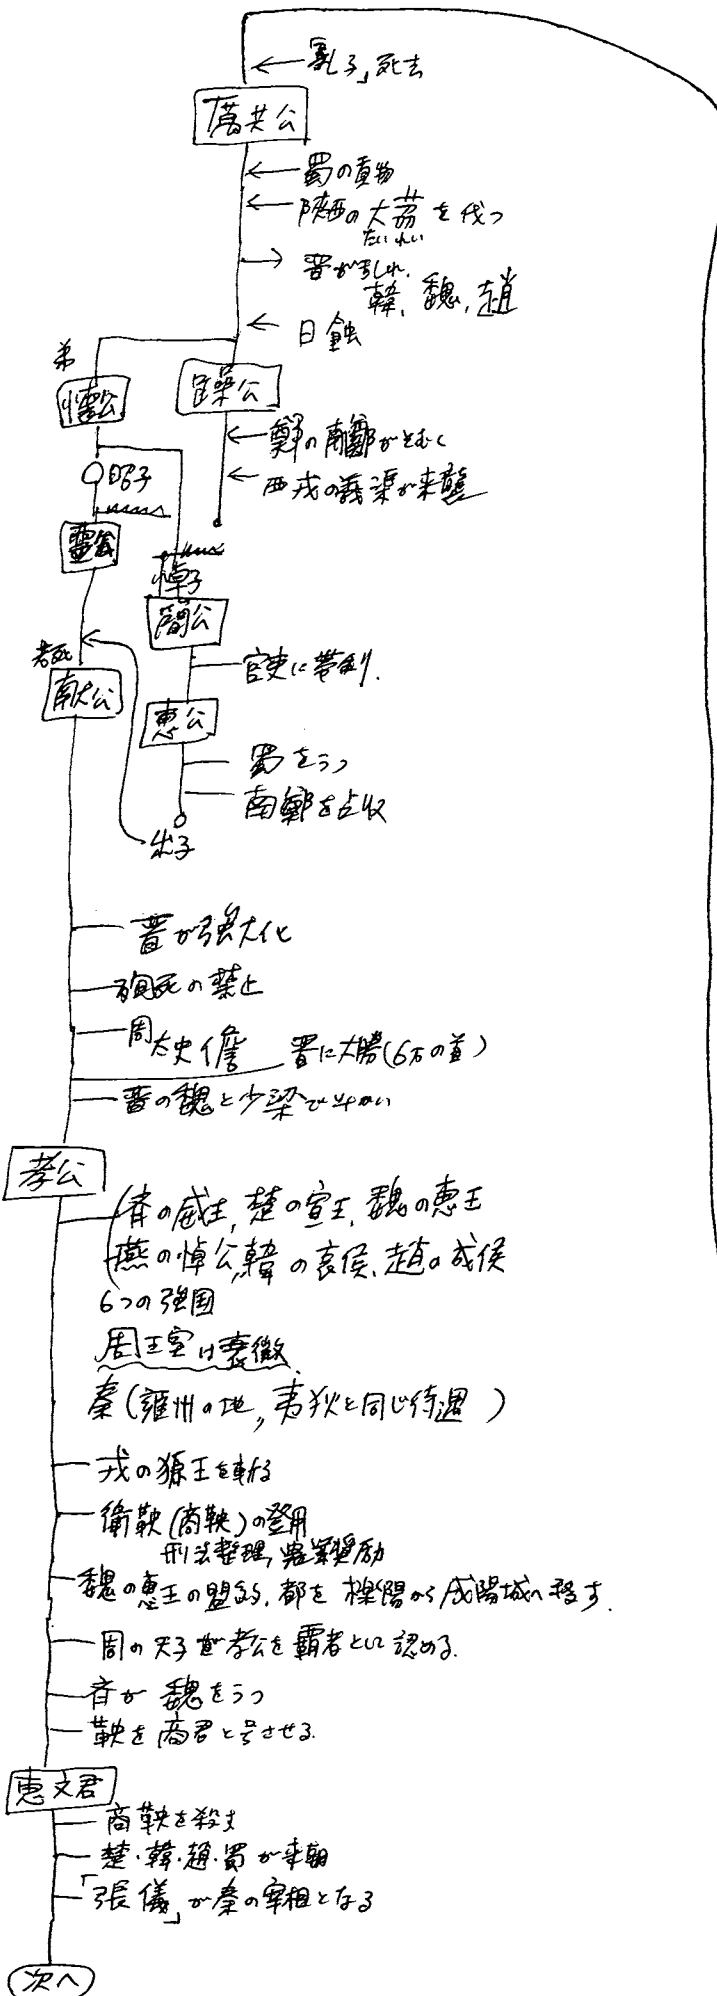 「孔子」死去
厲共公
蜀の貢物
陝西の大荔を伐つ
たいれい
晋が分れ、
韓、魏、趙
日蝕
弟
懐公
躁公
鄭の南鄭がそむく
西戎の義渠が来襲
昭子
霊公
悼子
簡公
官吏に帯剣。
献公
恵公
蜀をうつ
南鄭を占収
出子
晋が強大化
殉死の禁止
周太史儋
晋に大勝(6万の首)
晋の魏と少梁で戦い
孝公
斉の威王, 楚の宣王, 魏の恵王
燕の悼公,韓の哀侯、趙の成侯
6つの強国
周王室は衰微
秦(雍州の地, 夷狄と同じ待遇)
戎の獂王を斬る
衛鞅(商鞅)の登用
刑法整理, 農業奨励
魏の恵王の盟約、都を櫟陽から咸陽城へ移す.
周の天子が孝公を覇者として認める.
斉が魏をうつ
鞅を商君と号させる.
恵文君
商鞅を殺す
楚・韓・趙・蜀が来朝
「張儀」が秦の宰相となる
次へ